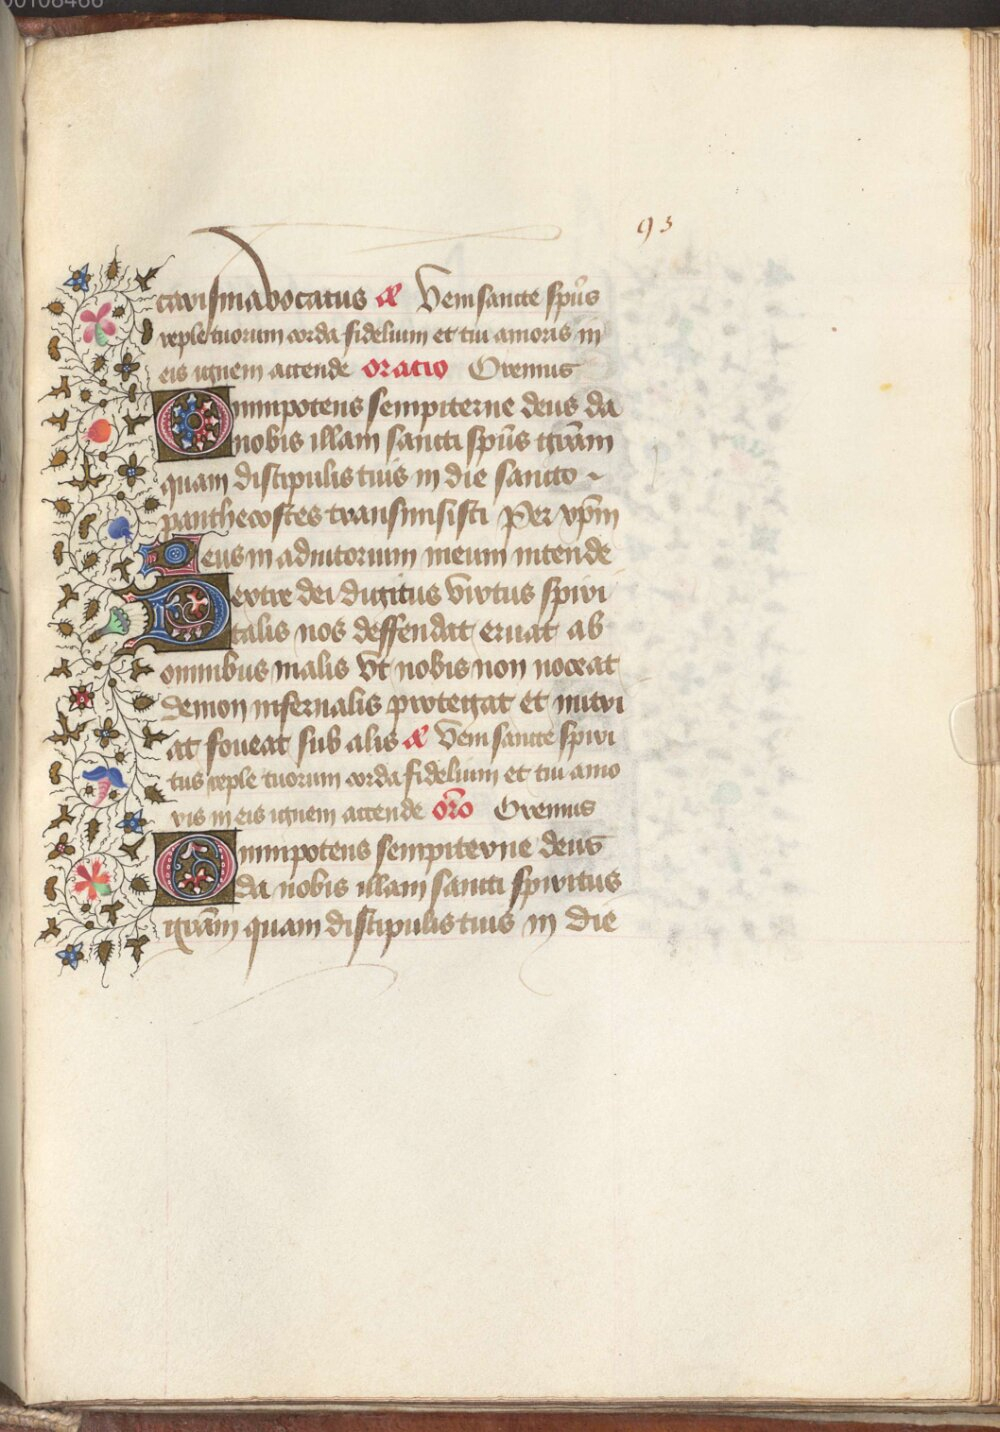 93
carismavocatus ā Veni sancte spūs
reple tuorum corda fidelium et tui amoris in
eis ignem accende oratio Oremus
Omnipotens sempiterne deus da
nobis illam sancti spūs grām
quam discipulis tuis in die sancto
panthecostes transmisisti Per xp̄m
Deus in adiutorium meum intende
Dextre dei digitus virtus spiri
talis nos deffendat eruat ab
omnibus malis Vt nobis non noceat
demon infernalis protegat et nutri
at foueat sub alis ā Veni sancte spiri
tus reple tuorum corda fidelium et tui amo
ris in eis ignem accende orō Oremus
Omnipotens sempiterne deus
da nobis illam sancti spiritus
grām quam discipulis tuis in die